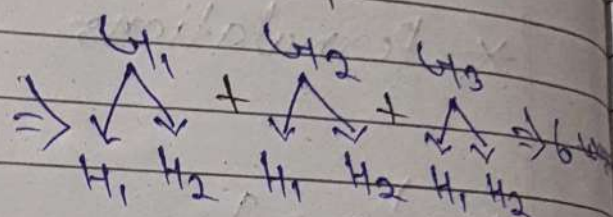 G1 G2 G3
⇒ + + ⇒ 6
H1 H2 H1 H2 H1 H2